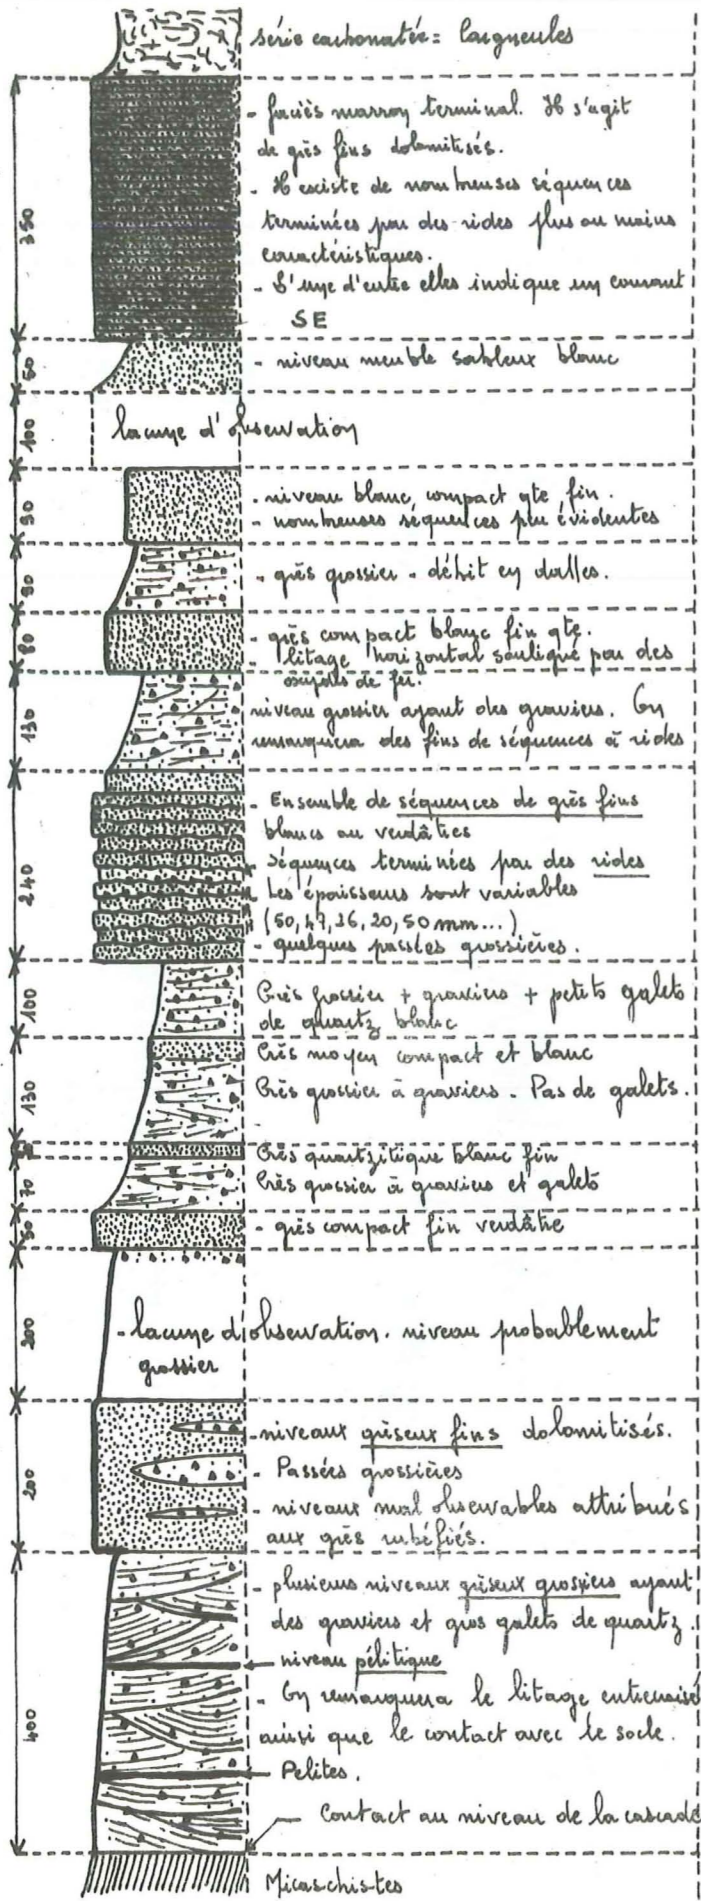 série carbonatée = cargneules
350
- faciès marron terminal. Il s'agit
de grès fins dolomitisés.
- Il existe de nombreuses séquences
terminées par des rides plus ou moins
caractéristiques.
- L'une d'entre elles indique un courant
SE
- niveau meuble sableux blanc
100
lacune d'observation
90
- niveau blanc compact gte fin.
- nombreuses séquences peu évidentes
90
- grès grossier - débit en dalles.
80
- grès compact blanc fin gte.
litage horizontal souligné par des
oxydes de fer.
130
niveau grossier ayant des graviers. On
remarquera des fins de séquences à rides
240
- Ensemble de séquences de grès fins
blancs ou verdâtres
Séquences terminées par des rides
Les épaisseurs sont variables
(50, 47, 36, 20, 50 mm...)
- quelques passées grossières.
100
Grès grossier + graviers + petits galets
de quartz blanc
130
Grès moyen compact et blanc
Grès grossier à graviers - Pas de galets.
Grès quartzitique blanc fin
70
Grès grossier à graviers et galets
50
- grès compact fin verdâtre
200
- lacune d'observation. niveau probablement
grossier
200
- niveaux gréseux fins dolomitisés.
- Passées grossières
- niveaux mal observables attribués
aux grès rubéfiés.
400
- plusieurs niveaux gréseux grossiers ayant
des graviers et gros galets de quartz.
niveau pélitique
- On remarquera le litage entrecroisé
ainsi que le contact avec le socle.
Pelites.
Contact au niveau de la cascade
Micaschistes